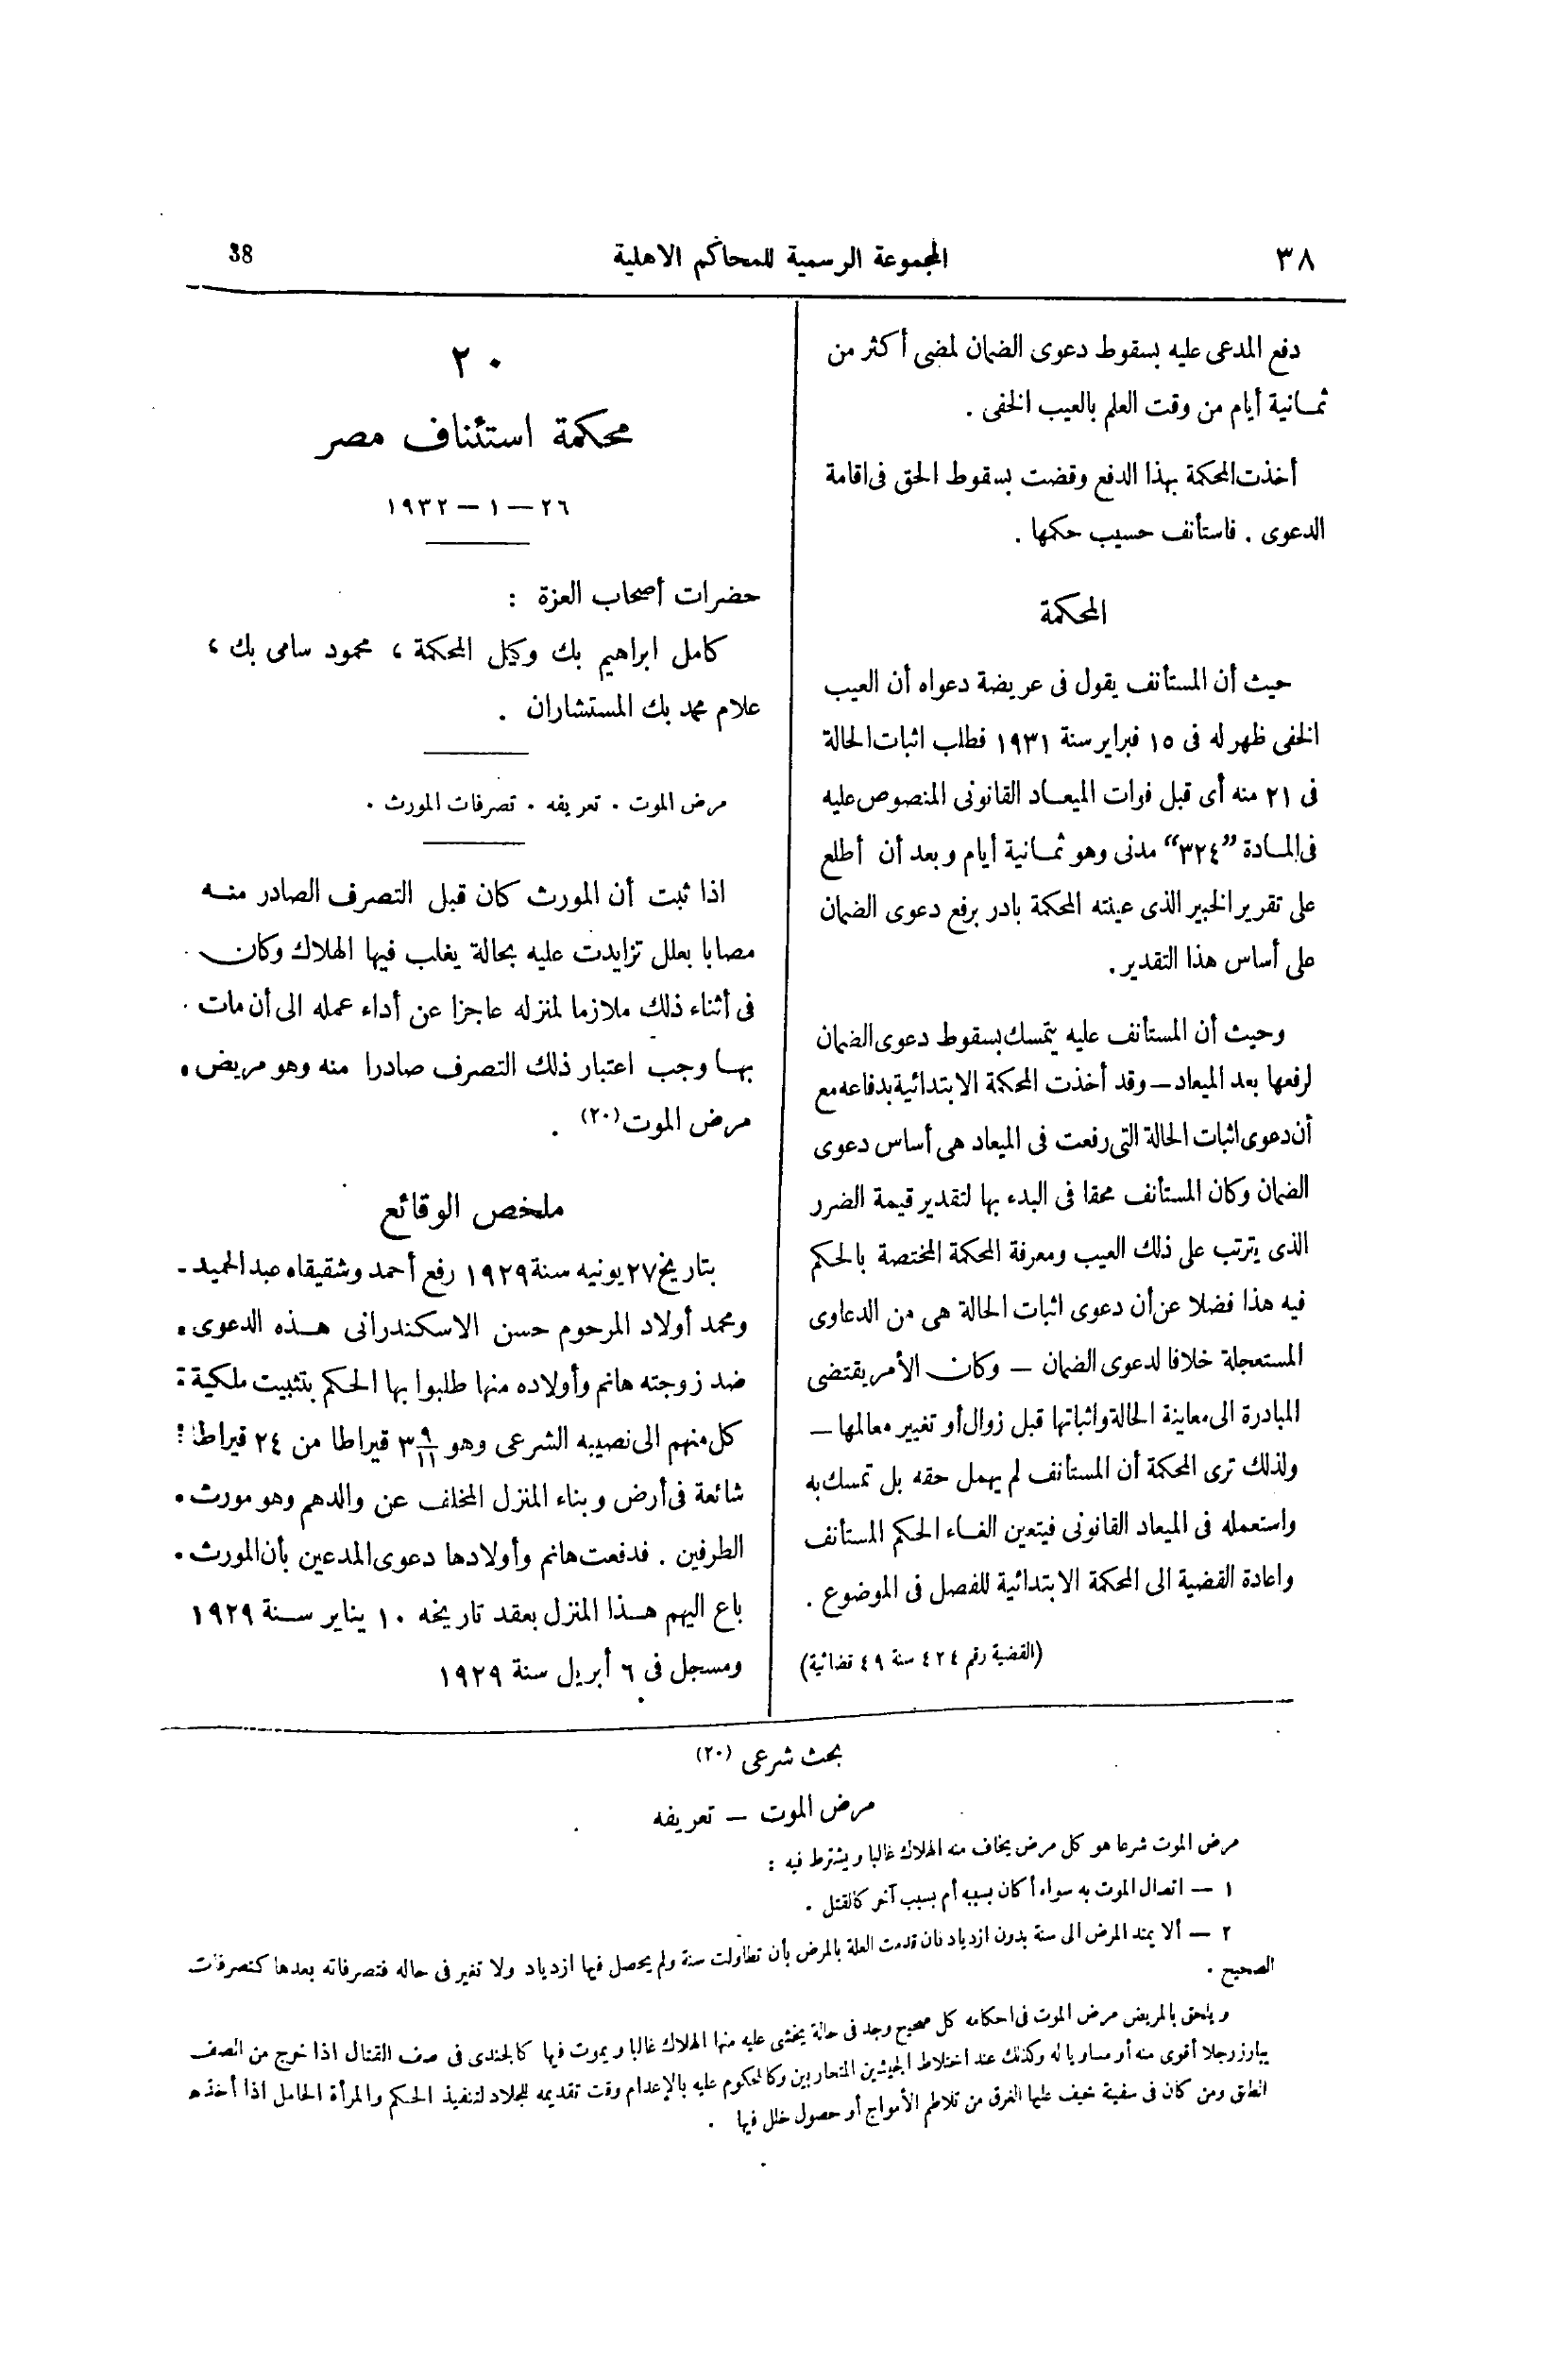 ٣٨
المجموعة الرسمية للمحاكم الاهلية
38
دفع المدعى عليه بسقوط دعوى الضمان لمضى أكثر من
ثمانية أيام من وقت العلم بالعيب الخفى .
أخذت المحكمة بهذا الدفع وقضت بسقوط الحق فى اقامة
الدعوى . فاستأنف حسيب حكمها .
المحكمة
حيث أن المستأنف يقول فى عريضة دعواه أن العيب
الخفى ظهر له فى ١٥ فبراير سنة ١٩٣١ فطلب اثبات الحالة
فى ٢١ منه أى قبل فوات الميعاد القانونى المنصوص عليه
فى المادة "٣٢٤" مدنى وهو ثمانية أيام وبعد أن أطلع
على تقرير الخبير الذى عينته المحكمة بادر برفع دعوى الضمان
على أساس هذا التقدير .
وحيث أن المستأنف عليه يتمسك بسقوط دعوى الضمان
لرفعها بعد الميعاد — وقد أخذت المحكمة الابتدائية بدفاعه مع
أن دعوى اثبات الحالة التى رفعت فى الميعاد هى أساس دعوى
الضمان وكان المستأنف محقا فى البدء بها لتقدير قيمة الضرر
الذى يترتب على ذلك العيب ومعرفة المحكمة المختصة بالحكم
فيه هذا فضلا عن أن دعوى اثبات الحالة هى من الدعاوى
المستعجلة خلافا لدعوى الضمان — وكان الأمر يقتضى
المبادرة الى معاينة الحالة واثباتها قبل زوال أو تغيير معالمها —
ولذلك ترى المحكمة أن المستأنف لم يهمل حقه بل تمسك به
واستعمله فى الميعاد القانونى فيتعين الغاء الحكم المستأنف
واعادة القضية الى المحكمة الابتدائية للفصل فى الموضوع .
(القضية رقم ٤٢٤ سنة ٤٩ قضائية)
٢٠
محكمة استئناف مصر
٢٦ — ١ — ١٩٣٢
حضرات أصحاب العزة :
كامل ابراهيم بك وكيل المحكمة ، محمود سامى بك ،
علام محمد بك المستشاران .
مرض الموت . تعريفه . تصرفات المورث .
اذا ثبت أن المورث كان قبل التصرف الصادر منه
مصابا بعلل تزايدت عليه بحالة يغلب فيها الهلاك وكان
فى أثناء ذلك ملازما لمنزله عاجزا عن أداء عمله الى أن مات
بها وجب اعتبار ذلك التصرف صادرا منه وهو مريض
مرض الموت (٢٠) .
ملخص الوقائع
بتاريخ ٢٧ يونيه سنة ١٩٢٩ رفع أحمد وشقيقاه عبد الحميد
ومحمد أولاد المرحوم حسن الاسكندرانى هذه الدعوى
ضد زوجته هانم وأولاده منها طلبوا بها الحكم بتثبيت ملكية
كل منهم الى نصيبه الشرعى وهو ٣ ٩/١١ قيراطا من ٢٤ قيراطا
شائعة فى أرض وبناء المنزل المخلف عن والدهم وهو مورث
الطرفين . فدفعت هانم وأولادها دعوى المدعين بأن المورث
باع اليهم هذا المنزل بعقد تاريخه ١٠ يناير سنة ١٩٢٩
ومسجل فى ٦ أبريل سنة ١٩٢٩
بحث شرعى (٢٠)
مرض الموت — تعريفه
مرض الموت شرعا هو كل مرض يخاف منه الهلاك غالبا ويشترط فيه :
١ — اتصال الموت به سواء أكان بسببه أم بسبب آخر كالقتل .
٢ — ألا يمتد المرض الى سنة بدون ازدياد فان قدمت العلة بالمرض بأن تطاولت سنة ولم يحصل فيها ازدياد ولا تغير فى حاله فتصرفاته بعدها كتصرفات
الصحيح .
ويلحق بالمريض مرض الموت فى احكامه كل صحيح وجد فى حالة يخشى عليه منها الهلاك غالبا ويموت فيها كالجندى فى صف القتال اذا خرج من الصف
يبارز رجلا أقوى منه أو مساويا له وكذلك عند اختلاط الجيشين المتحاربين وكالمحكوم عليه بالإعدام وقت تقديمه للجلاد لتنفيذ الحكم والمرأة الحامل اذا أخذها
الطلق ومن كان فى سفينة خيف عليها الغرق من تلاطم الأمواج أو حصول خلل فيها .